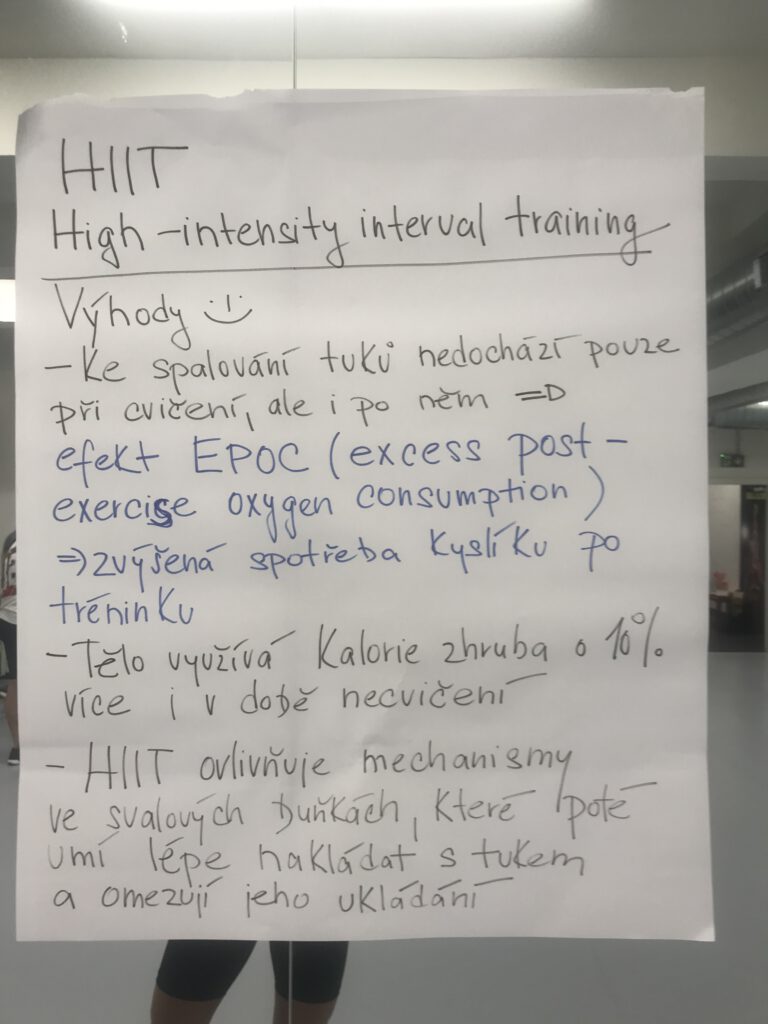 HIIT
High-intensity interval training
Výhody
- Ke spalování tuků nedochází pouze
při cvičení, ale i po něm =D
efekt EPOC (excess post-
exercise oxygen consumption)
=> zvýšená spotřeba kyslíku po
tréninku
- Tělo využívá kalorie zhruba o 10%
více i v době necvičení
- HIIT ovlivňuje mechanismy
ve svalových buňkách, které poté
umí lépe nakládat s tukem
a omezují jeho ukládání